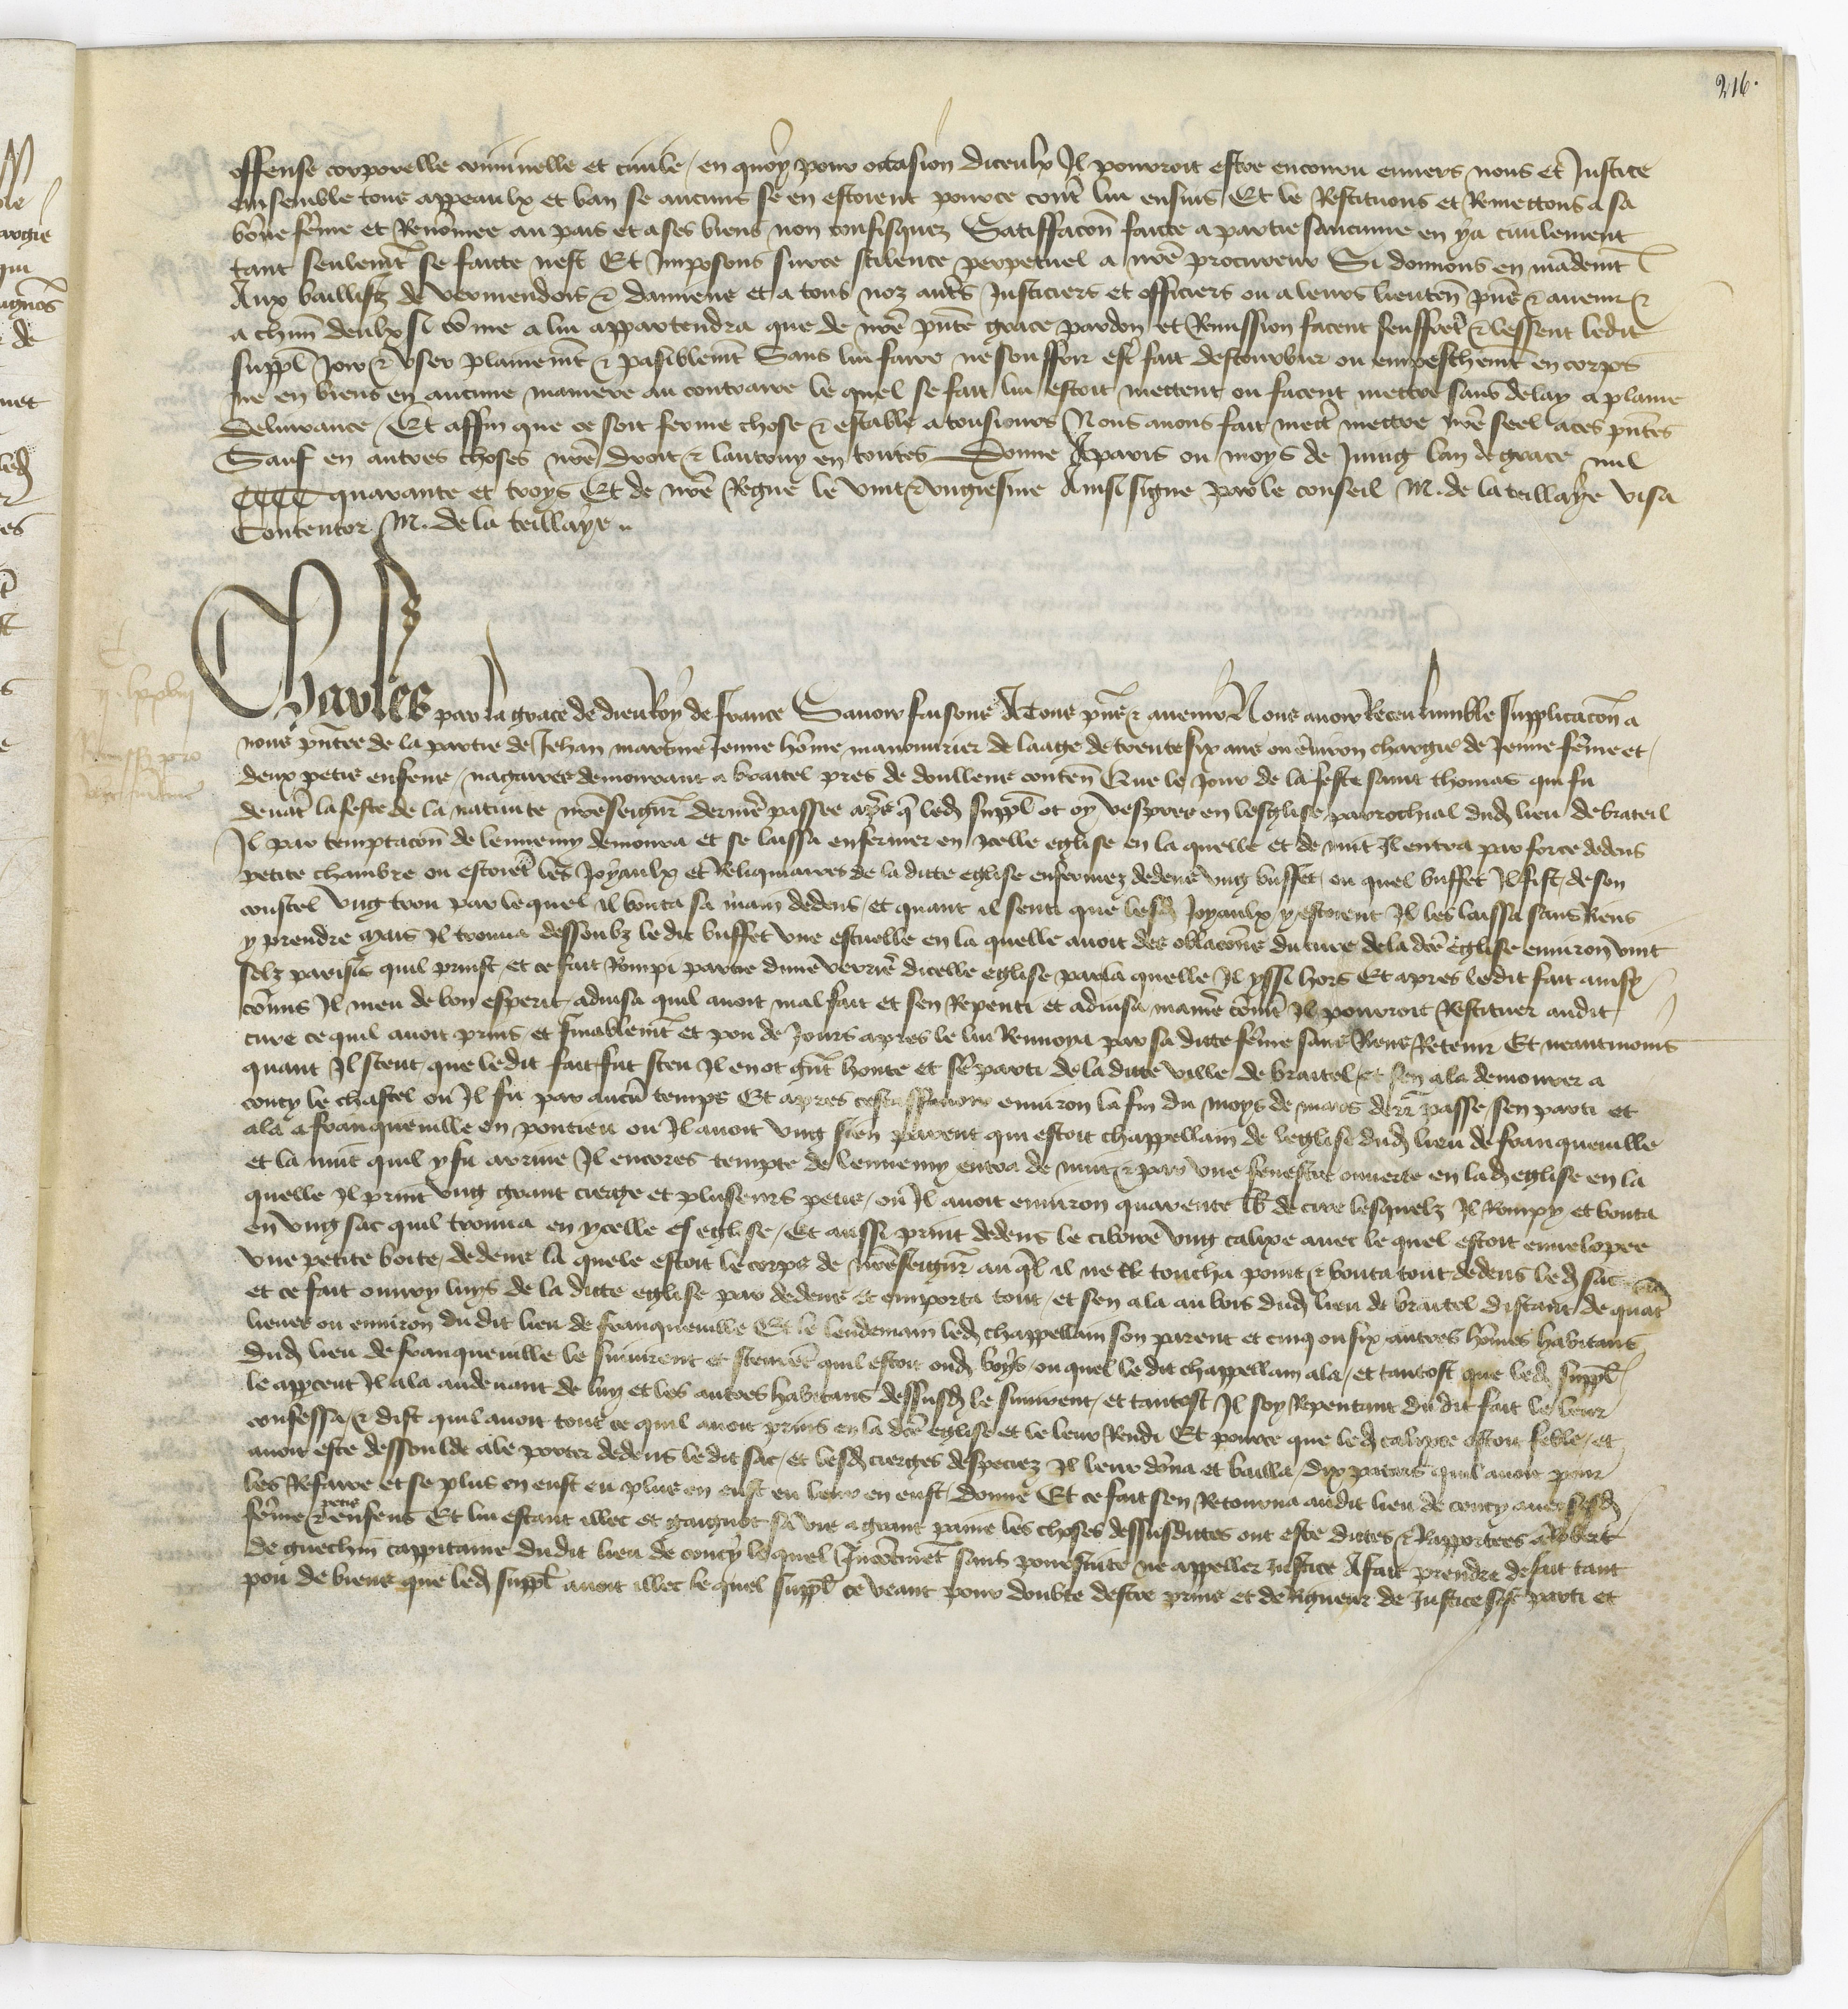 216.
offense corporelle criminelle et civile / en quoy pour occasion diceulx Il pourroit estre encouru envers nous et Justice
ensemble tous appeaulx et ban se aucuns se en estoient pource contr lui ensuis Et le Restituons et Remettons a sa
bōne fēme et Renōmee au pais et a ses biens non confisquez Satiffacon faicte a partie saucune en y a civilement
tant seulemt se faicte nest Et Imposons surce scilence perpetuel a nrē procureur Si donnons en mādemt
Aux bailliſz de vermendois & damiens et a tous noz autrēs Justiciers et officiers ou a leurs lieutēn pn̄s & avenir &
a chūn deulx si cōme a lui appartendra que de nrē pn̄te grace pardon et Remission facent seuffrēt & lessent ledit
suppl Joir & user plainemt & pasiblemt Sans lui faire ne souffrir estr fait destourbier ou empeschemt en corps
ne en biens en aucune maniere au contraire le quel se fait lui estoit mettent ou facent mettre sans delay a plaine
delivrance / Et affin que ce soit ferme chose & estable a tousiours Nous avons fait mectr mettre nrē seel a ces pn̄tes
Sauf en autres choses nrē droit & lautruy en toutes Donne A paris ou moys de Juing lan de grace mil
CCCC quarante et troys Et de nrē Regne le vint & ungiesme Ainsi signe par le conseil M. de la teillaye visa
Contentor M. de la teillaye
Charles par la grace de dieu Roy de france Savoir faisons A Tous pn̄s & avenir Nous avoir Receu lumble supplicacōn a
nous pn̄tee de la partie de Jehan martin Jenne hōme manouvrier de laage de trente six ans ou ēviron chargie de Jenne fēme et
deux petis enfens / nagaires demourant a braitel pres de doullens contēn Que le Jour de la feste saint thomas qui fu
devāt la feste de la nativite nrēseigneur dernirē passee aprēs q led suppl ot oy vespres en lesglise parrochial dud lieu de brateil
Il par temptacōn de lennemy demoura et se laissa enfermer en icelle eglise en la quelle et de nuit Il entra par force dedens
petite chambre ou estoiēt les Joyaulx et Reliquiaires de la dicte eglise enfermez dedens ung buffet / ou quel buffet Il fist / de son
coustel ung trou par lequel il bouta sa main dedens / et quant il senti que lesd Joyaulx y estoient Il les laissa sans Riens
y prendre mais Il trouva dessoubz le dit buffet une escuelle en la quelle avoit des oblacōns du cure de la dcē eglise environ vint
solz parisis quil prinst / et ce fait Rompi partie dune verriē dicelle eglise par la quelle Il yssi hors Et apres ledit fait ainsy
cōmis Il meu de bon esperit advisa quil avoit mal fait et sen Repenti et advisa manierē cōmēt Il pourroit Restituer audit
cure ce quil avoit prins / et finablemt et pou de Jours apres le lui Renvoya par sa dicte fēme sans Riens Retenir Et neantmoins
quant Il sceut que ledit fait fut sceu Il en ot grāt honte et se parti de la dicte ville de braitel / et sen ala demourer a
coucy le chastel ou Il fu par aucū temps Et apres environ la fin du moys de mars derr passe / sen parti et
ala a franqueville en pontieu ou Il avoit ung sien parent qui estoit chappellain de leglise dud lieu de franqueville
et la nuit quil y fu arrive Il encores tempte de lennemy entra de nuit & par une fenestre ouverte en lad eglise en la
quelle Il print ung grant cierge et pluseurs petis / ou Il avoit environ quarente lb de cire lesquelz Il Rompy et bouta
en ung sac quil trouva en ycelle es eglise / Et aussi print dedens le ciborē ung calixe avec le quel estoit envelopee
une petite boite / dedens la quele estoit le corps de nrēseignr au ql il ne toucha point & bouta tout dedens led sac
et ce fait ouvry luys de la dicte eglise par dedens et emporta tout / et sen ala au bois dud lieu de braitel distant de quatr
lieues ou environ du dit lieu de franqueville Et le lendemain led chappellain son parent et cinq ou six autres hōmes habitans
dud lieu de franqueville le suivirent et sceurēt quil estoit oud boys / ou quel le dit chappellain ala / et tantost que led suppl
le appceut Il ala audevant de luy et les autres habitans dessusd le suivirent / et tantost Il soy Repentant du dit fait le leur
confessa / & dist quil avoit tout ce quil avoit prins en la dcē eglise et le leur Rendi Et pource que led calixe estoit feble / et
avoit este dessoulde a le porter dedens ledit sac / et lesd cierges despeciez Il leur dōna et bailla / dix patars quil avoit pour
les Refaire et se plus en eust eu plus en eust eu leur en eust / donne Et ce fait sen Retourna audit lieu de coucy avec sesd
fēme & petis enfens Et lui estant illec et gaignot sa vie a grant paine les choses dessusdictes ont este dictes & Rapportees a Robert
de guechin cappitaine dudit lieu de coucy lequel Incōtinēt sans poursuite ne appeller Justice A fait prendre de fait tant
pou de biens que led suppl avoit illec le quel suppl ce veant pour doubte destre prins et de Rigueur de Justice sest parti et